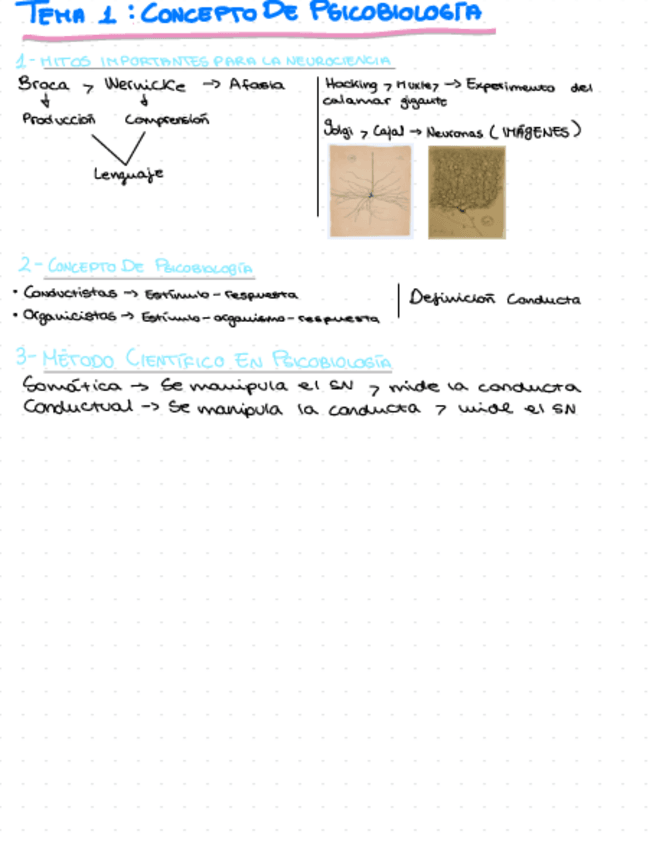 TEMA 1 : CONCEPTO DE PSICOBIOLOGÍA
1- HITOS IMPORTANTES PARA LA NEUROCIENCIA
Broca y Wernicke → Afasia
↓ ↓
Producción Comprensión
Lenguaje
Hocking y Huxley → Experimento del
calamar gigante
Golgi y Cajal → Neuronas ( IMÁGENES )
2- CONCEPTO DE PSICOBIOLOGÍA
• Conductistas → Estímulo - respuesta
• Organicistas → Estímulo - organismo - respuesta
Definición Conducta
3- MÉTODO CIENTÍFICO EN PSICOBIOLOGÍA
Somática → Se manipula el SN y mide la conducta
Conductual -> Se manipula la conducta y mide el SN